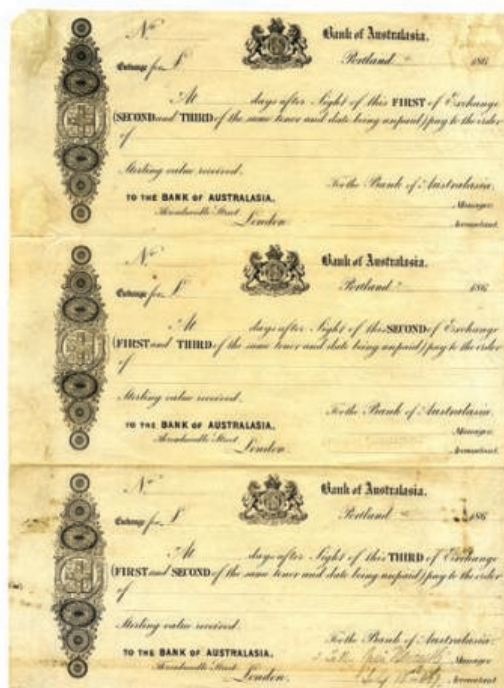 No
Bank of Australasia.
Exchange for £
Portland
186
At days after Sight of this FIRST of Exchange
(SECOND and THIRD of the same tenor and date being unpaid) pay to the order
of
Sterling value received.
For the Bank of Australasia,
TO THE BANK OF AUSTRALASIA,
Manager.
Threadneedle Street
London.
Accountant.
No
Bank of Australasia.
Exchange for £
Portland
186
At days after Sight of this SECOND of Exchange
(FIRST and THIRD of the same tenor and date being unpaid) pay to the order
of
Sterling value received.
For the Bank of Australasia,
TO THE BANK OF AUSTRALASIA,
Manager.
Threadneedle Street
London.
Accountant.
No
Bank of Australasia.
Exchange for £
Portland
186
At days after Sight of this THIRD of Exchange
(FIRST and SECOND of the same tenor and date being unpaid) pay to the order
of
Sterling value received.
For the Bank of Australasia.
TO THE BANK OF AUSTRALASIA,
Manager
Threadneedle Street
London.
Accountant.